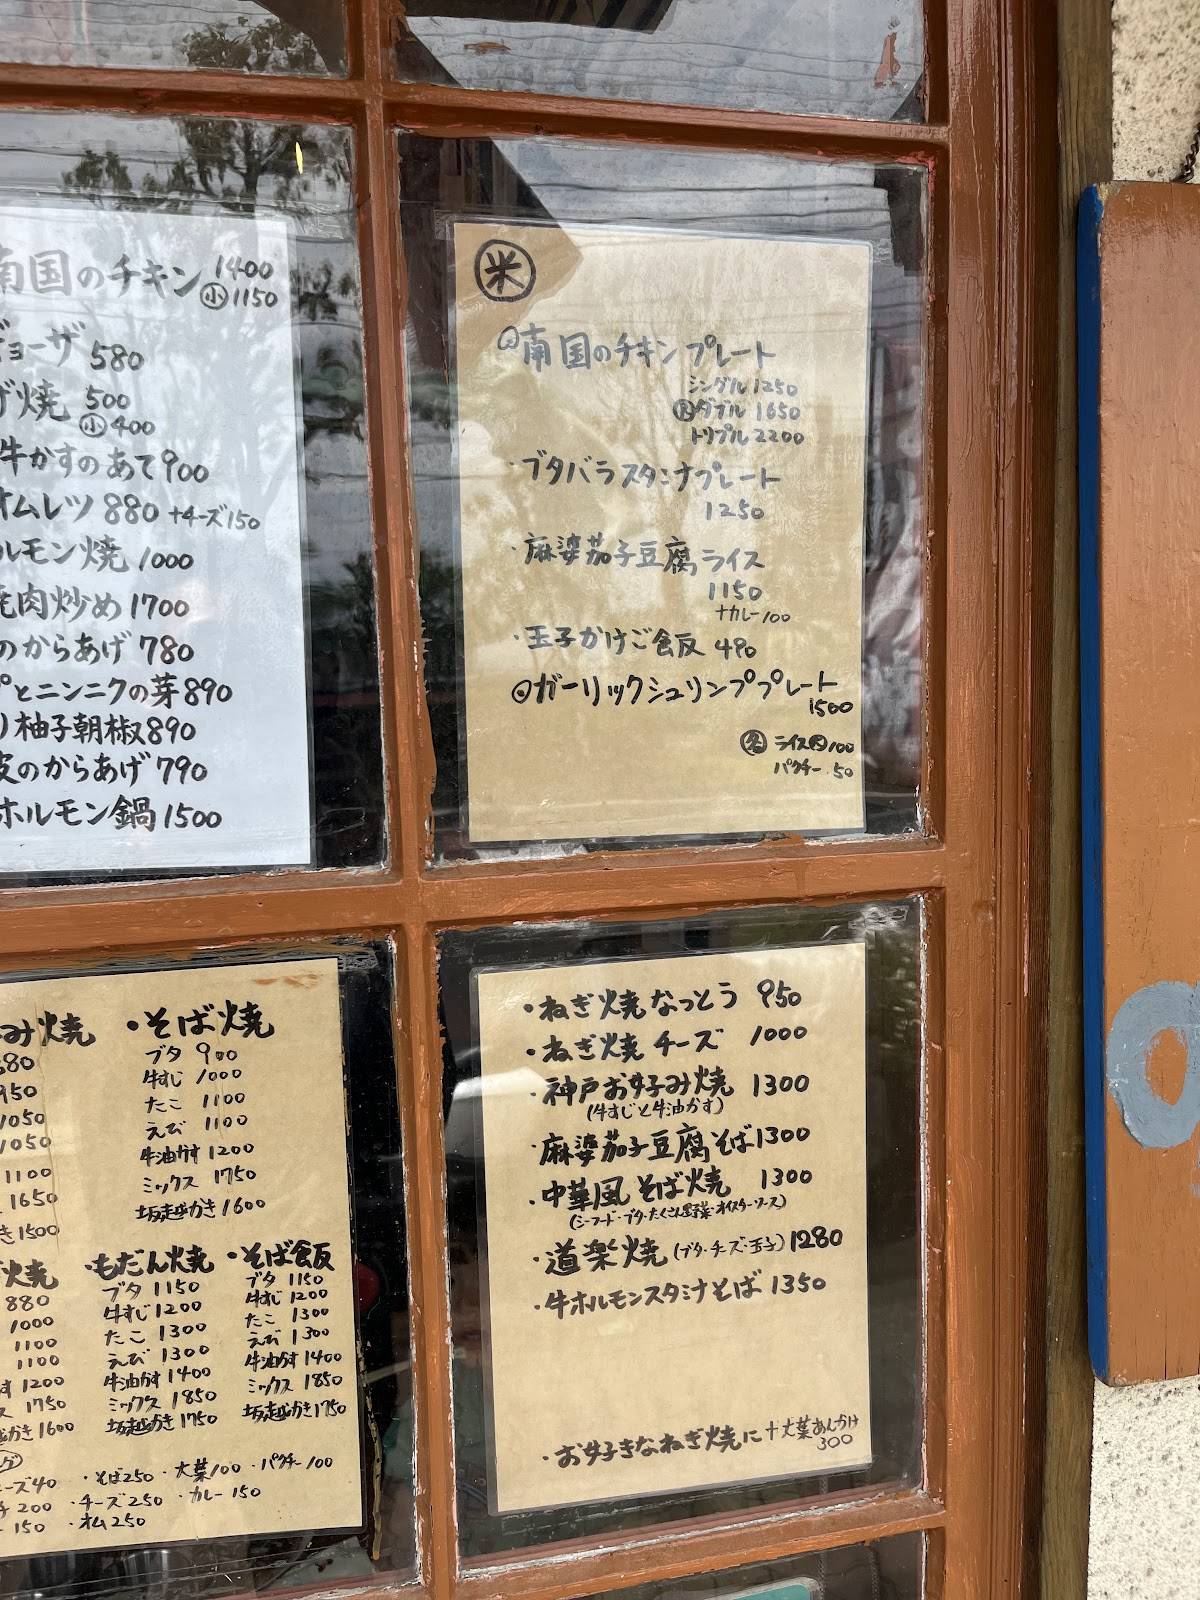 南国のチキン 1400
小 1150
ギョーザ 580
焼 500
小 400
牛かすのあて 900
オムレツ 880 +チーズ150
ルモン焼 1000
焼肉炒め 1700
のからあげ 780
とニンニクの芽 890
り柚子胡椒 890
皮のからあげ 790
ホルモン鍋 1500
米
南国のチキンプレート
シングル 1250
ダブル 1650
トリプル 2200
・ブタバラスタミナプレート
1250
・麻婆茄子豆腐ライス
1150
+カレー100
・玉子かけご飯 490
ガーリックシュリンププレート
1500
ライス大100
パクチー 50
み焼
880
950
1050
1050
1100
1650
き1500
・そば焼
ブタ 900
牛すじ 1000
たこ 1100
えび 1100
牛油かす 1200
ミックス 1750
坂越かき 1600
焼
880
1000
1100
1100
す 1200
ス 1750
坂越かき 1600
・もだん焼
ブタ 1150
牛すじ 1200
たこ 1300
えび 1300
牛油かす 1400
ミックス 1850
坂越かき 1750
・そば飯
ブタ 1150
牛すじ 1200
たこ 1300
えび 1300
牛油かす 1400
ミックス 1850
坂越かき 1750
ーズ40 ・そば250 ・大葉100 ・パクチー100
200 ・チーズ250 ・カレー150
150 ・オム250
・ねぎ焼なっとう 950
・ねぎ焼チーズ 1000
・神戸お好み焼 1300
(牛すじと牛油かす)
・麻婆茄子豆腐そば 1300
・中華風そば焼 1300
(シーフード・ブタ・たくさん野菜・オイスターソース)
・道楽焼(ブタ・チーズ・玉子) 1280
・牛ホルモンスタミナそば 1350
・お好きなねぎ焼に+大葉あんかけ
300